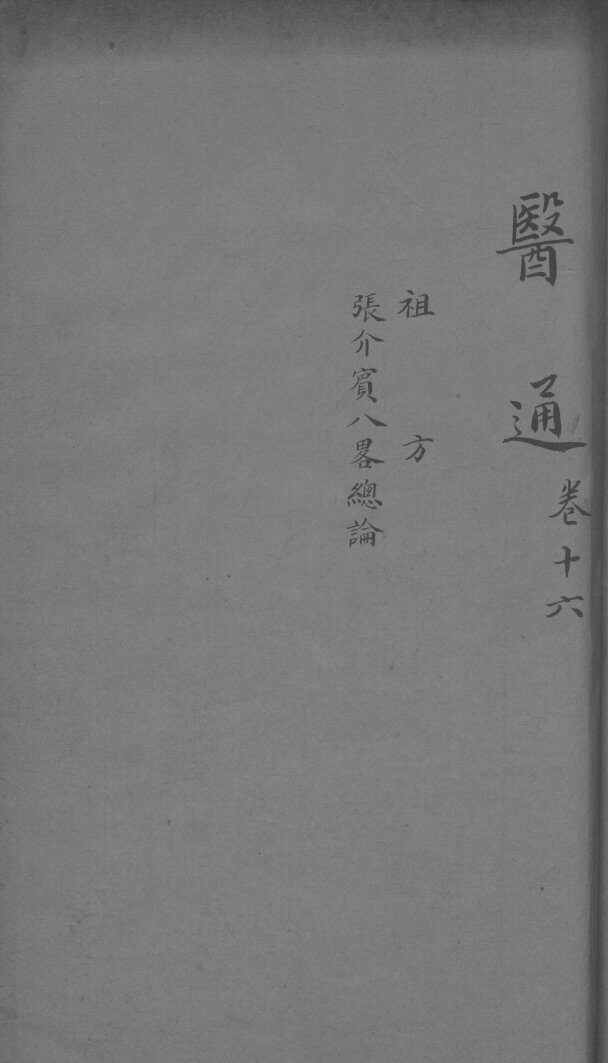 醫通卷十六
祖方
張介賓八畧總論